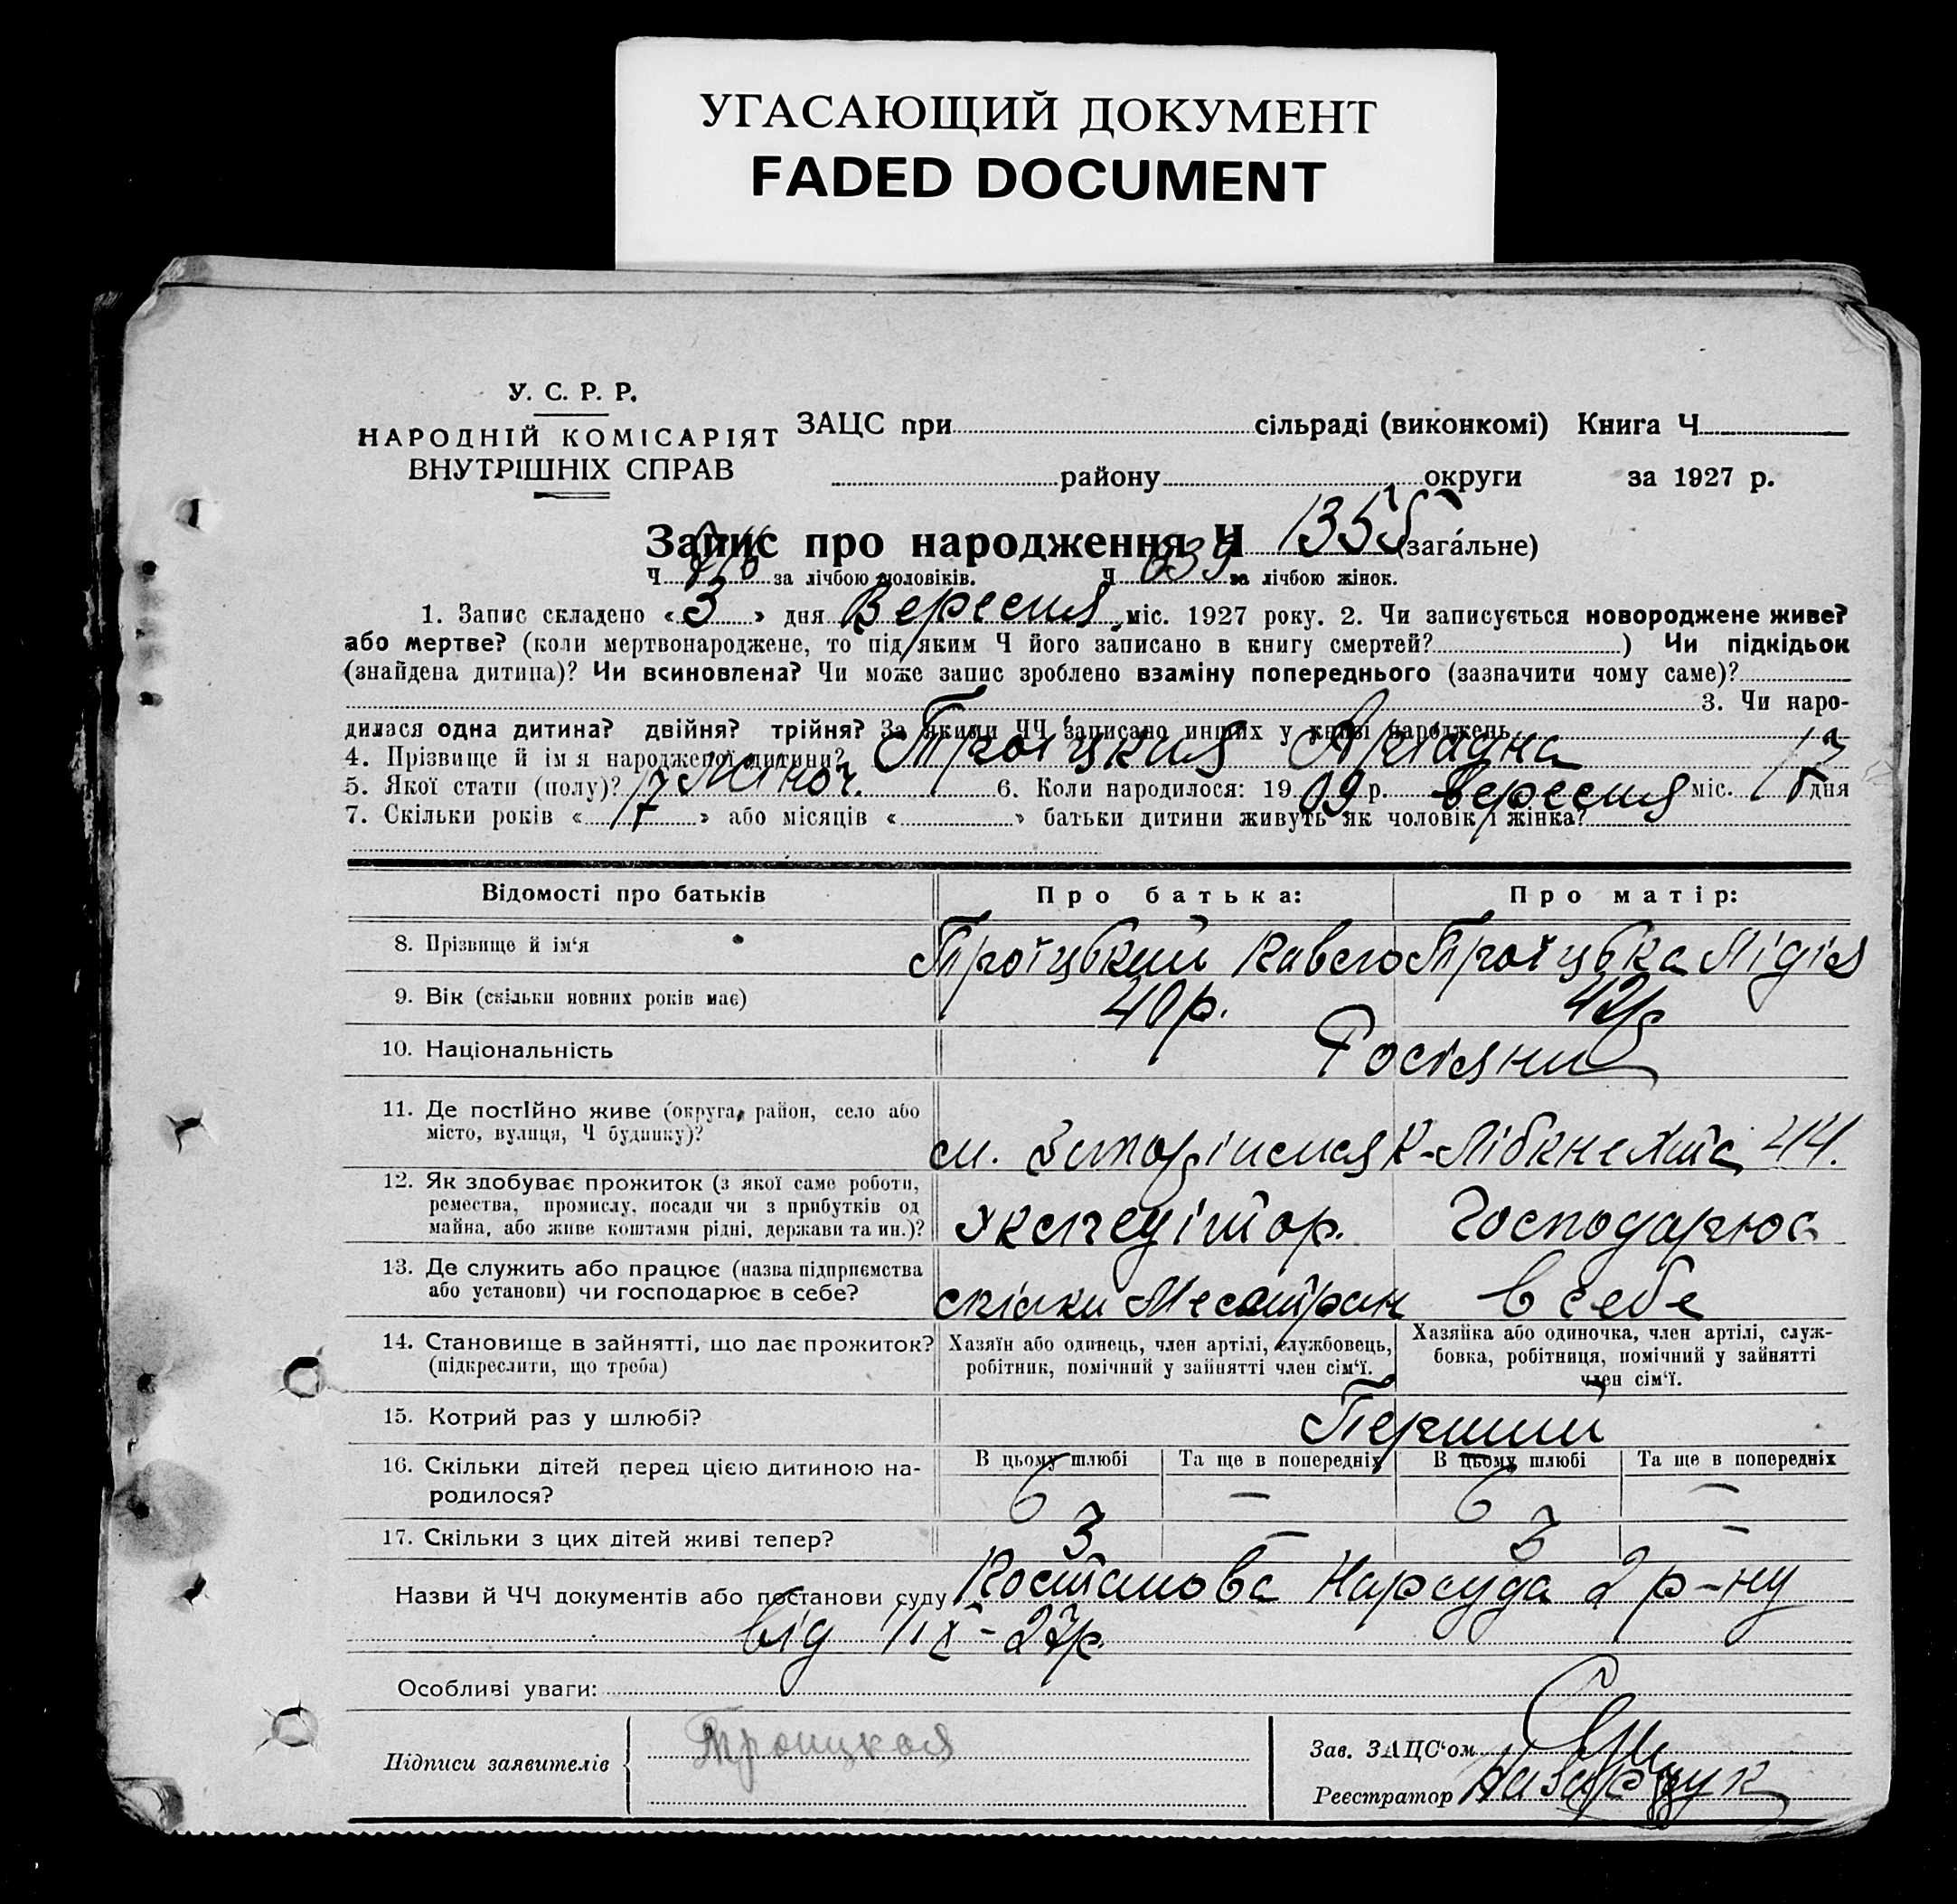 УГАСАЮЩИЙ ДОКУМЕНТ
FADED DOCUMENT
У. С. Р. Р.
НАРОДНІЙ КОМІСАРІЯТ
ВНУТРІШНІХ СПРАВ
ЗАЦС при сільраді (виконкомі) Книга Ч
району округи за 1927 р.
Запис про народження Ч 1355 (зага́льне)
Ч 716 за лічбою чоловіків. Ч 639 за лічбою жінок.
1. Запис складено « 3 » дня Вересня міс. 1927 року. 2. Чи записується новороджене живе?
або мертве? (коли мертвонароджене, то під яким Ч його записано в книгу смертей? ) Чи підкідьок
(знайдена дитина)? Чи всиновлена? Чи може запис зроблено взаміну попереднього (зазначити чому саме)?
3. Чи наро-
дилася одна дитина? двійня? трійня? За якими ЧЧ записано инших у книзі народжень
4. Прізвище й ім я народженої дитини? Троїцкия Аріадна
5. Якої стати (полу)? жіноч. 6. Коли народилося: 19 09 р. вересня міс. дня
7. Скільки років « 17 » або місяців « » батьки дитини живуть як чоловік і жінка?
Відомості про батьків Про батька: Про матір:
8. Прізвище й ім‘я Троїцький Троїцька Лідія
9. Вік (скільки повних років має) 40 р. 42 р
10. Національність Росіяни
11. Де постійно живе (округа, район, село або
місто, вулиця, Ч будинку)? м. К-Лібкнехта 44.
12. Як здобуває прожиток (з якої саме роботи,
ремества, промислу, посади чи з прибутків од
майна, або живе коштами рідні, держави та ин.)? экспедітор. Господарює
13. Де служить або працює (назва підприємства
або установи) чи господарює в себе? спілки Месатран в себе
14. Становище в зайнятті, що дає прожиток?
(підкреслити, що треба)
Хазяїн або одинець, член артілі, службовець,
робітник, помічний у зайнятті член сім‘ї.
Хазяйка або одиночка, член артілі, служ-
бовка, робітниця, помічний у зайнятті
член сім‘ї.
15. Котрий раз у шлюбі? Перший
16. Скільки дітей перед цією дитиною на-
родилося?
В цьому шлюбі Та ще в попередніх В цьому шлюбі Та ще в попередніх
6 — 6 —
17. Скільки з цих дітей живі тепер? 3 — 3 —
Назви й ЧЧ документів або постанови суду Постанова Нарсуда 2 р-ну
від 1/IX-27р.
Особливі уваги:
Підписи заявителів Троицкая
Зав. ЗАЦС‘ом
Реєстратор